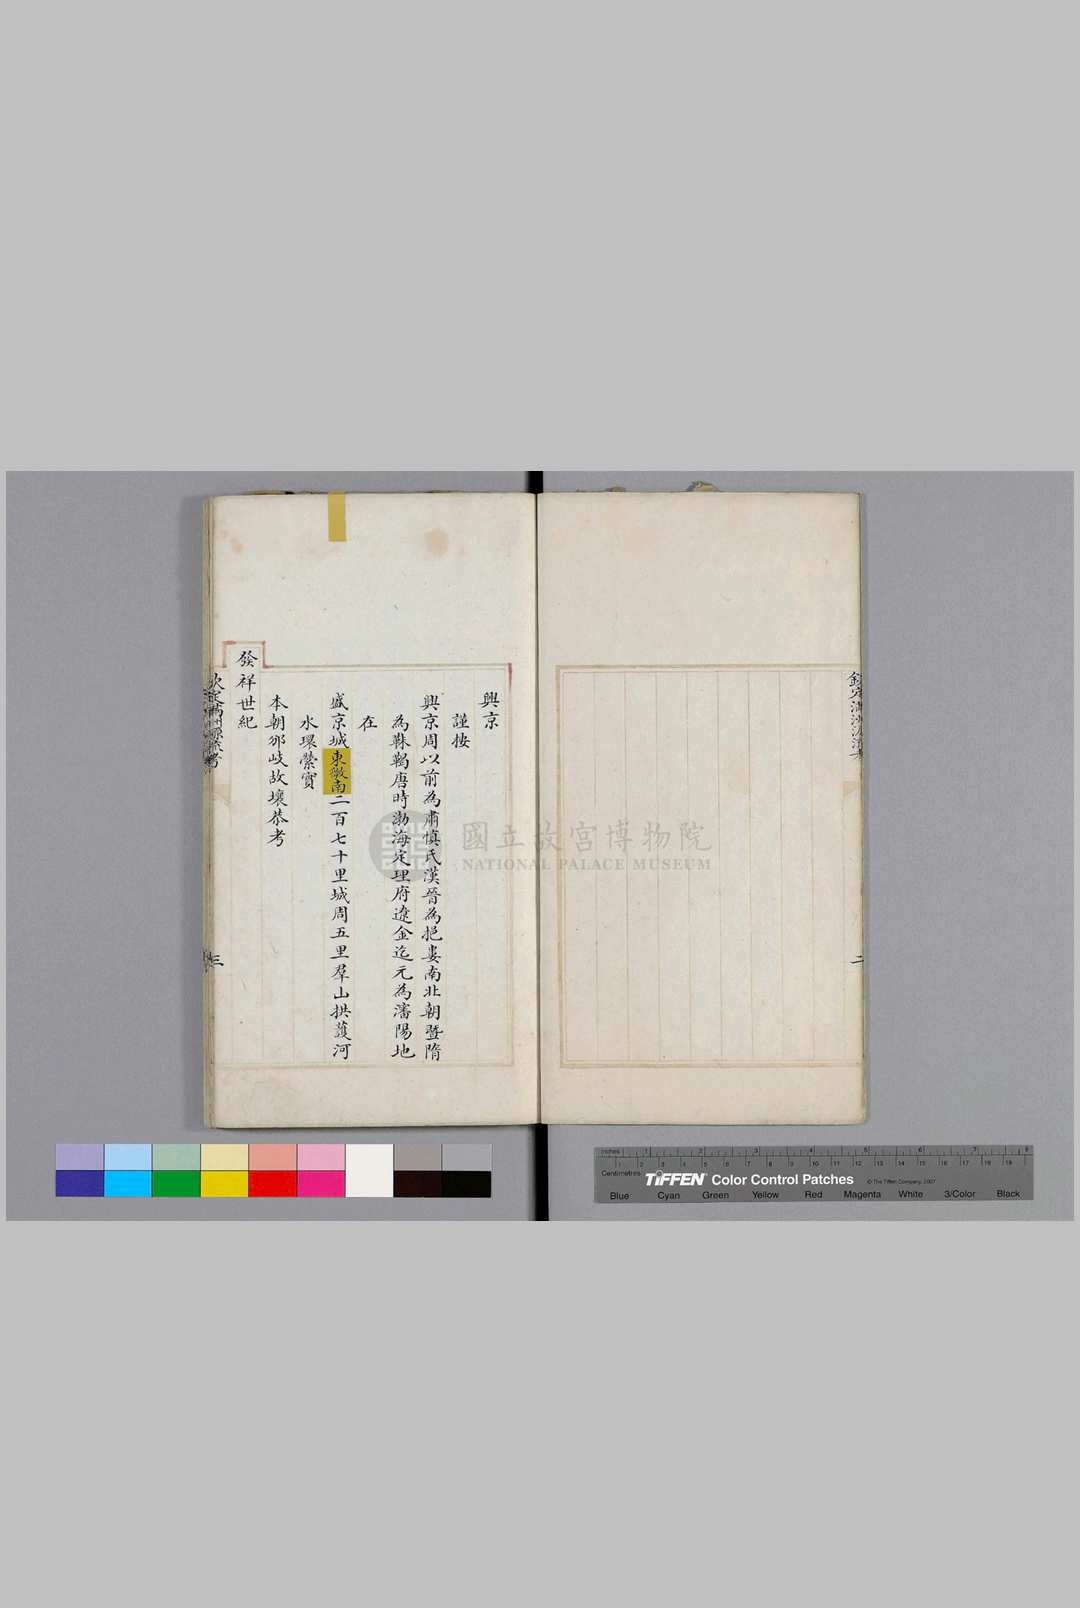 興京
謹按
興京周以前為肅慎氏漢晉為挹婁南北朝暨隋
為靺鞨唐時渤海定理府遼金迄元為瀋陽地
在
盛京城東徼南二百七十里城周五里羣山拱䕶河
水環縈實
本朝邠岐故壤恭考
發祥世紀
欽定滿洲源流考
三
二
國立故宮博物院
NATIONAL PALACE MUSEUM
Inches 1 2 3 4 5 6 7 8
1 2 3 4 5 6 7 8 9 10 11 12 13 14 15 16 17 18 19
Centimetres
TIFFEN Color Control Patches
© The Tiffen Company, 2007
Blue Cyan Green Yellow Red Magenta White 3/Color Black